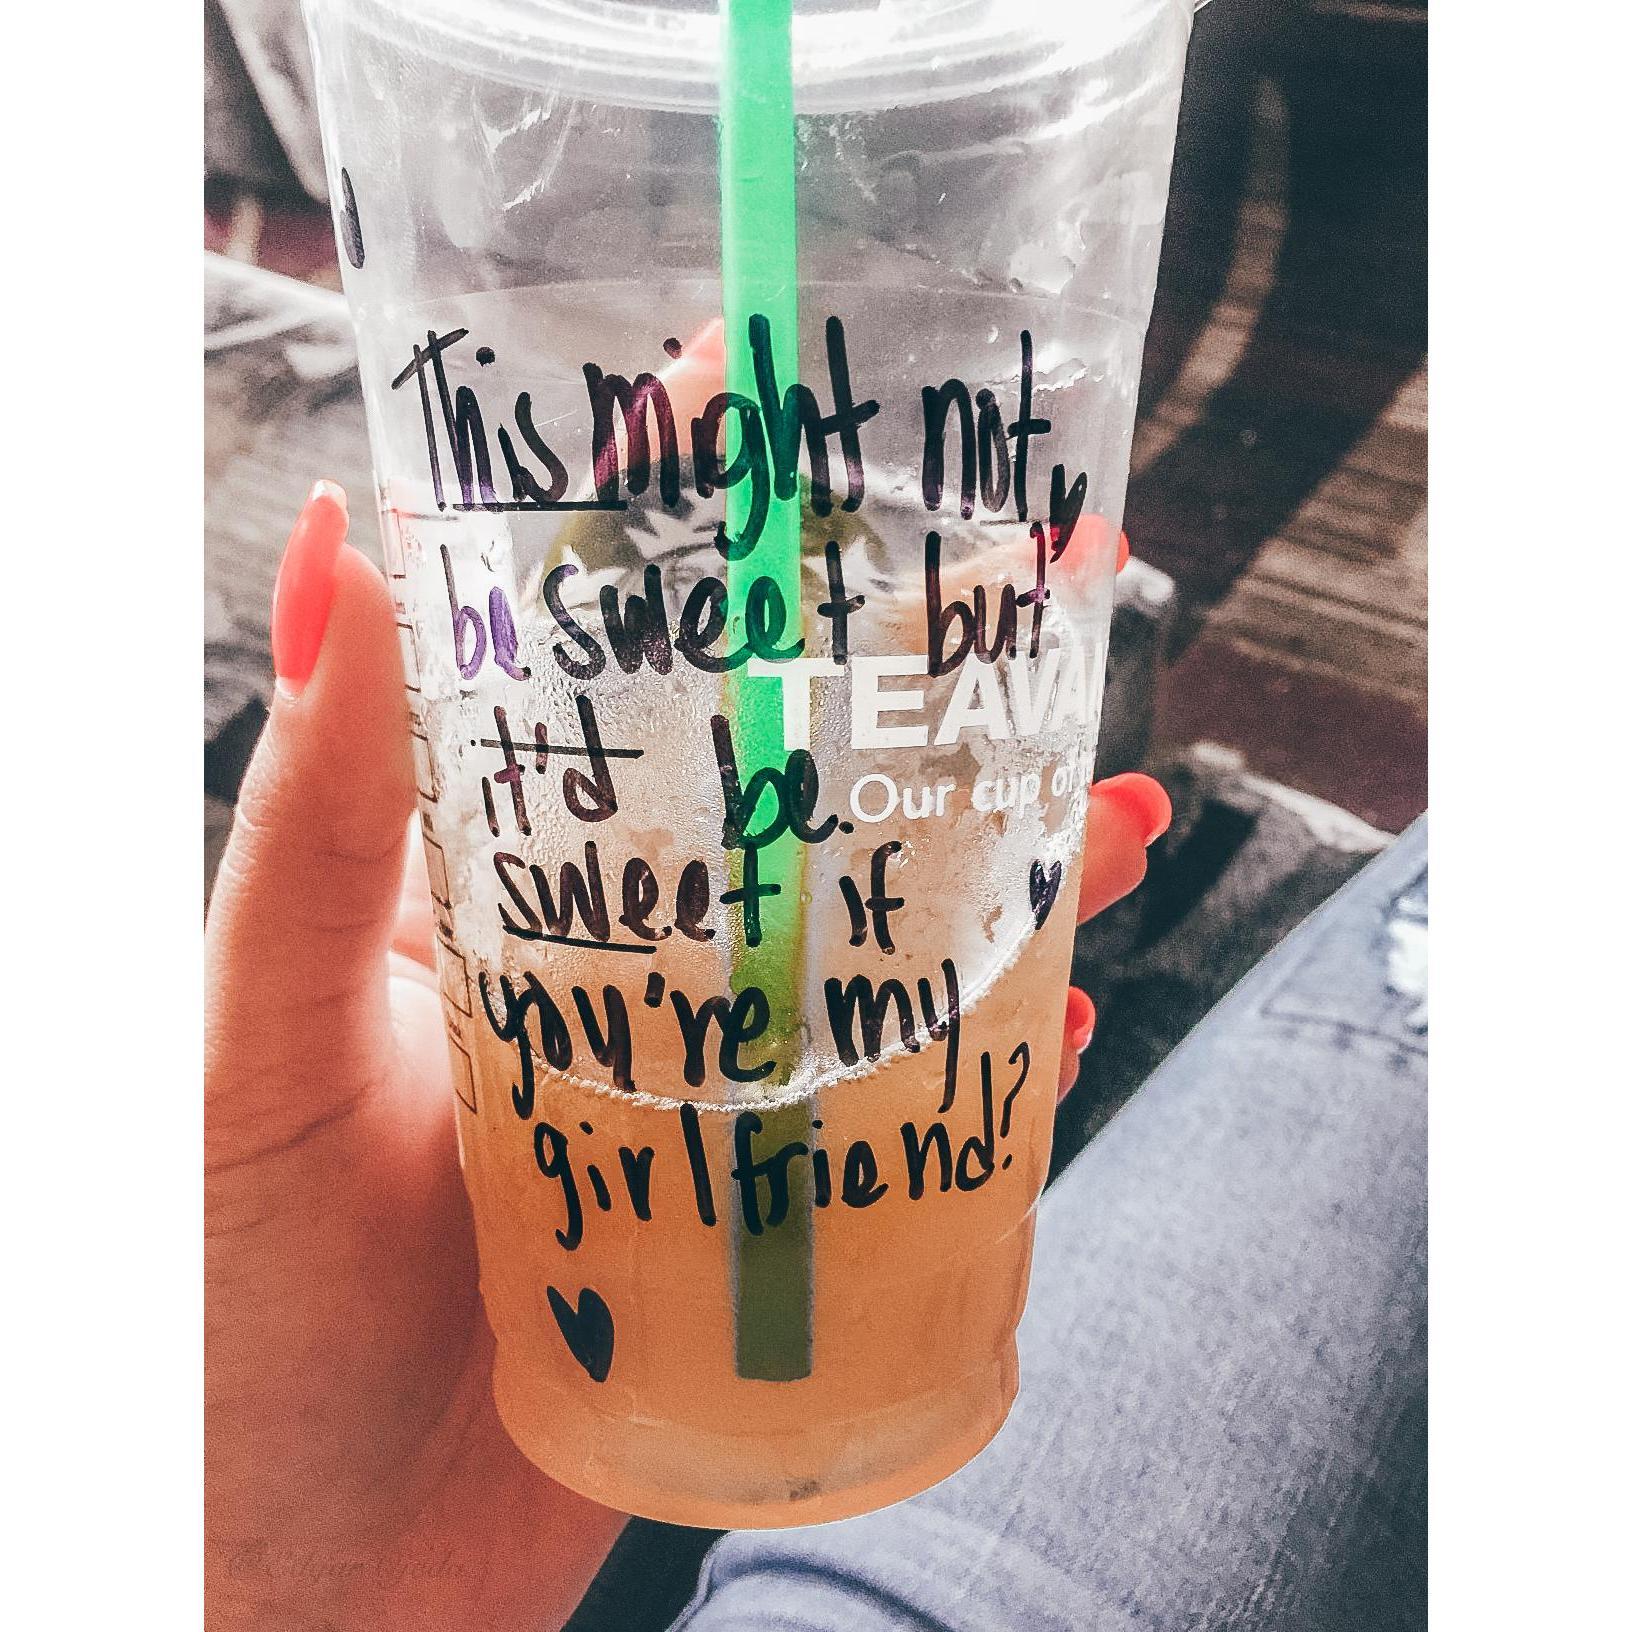 This might not
be sweet but
TEAVA
it'd be.
Our cup of
sweet if
you're my
girlfriend?